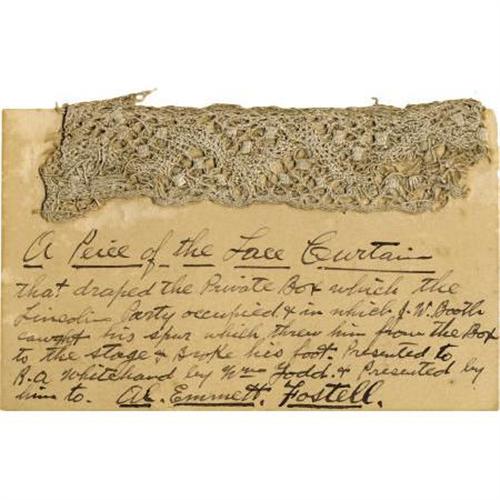 A Peice of the Lace Curtain
that draped the Private Box which the
Lincoln Party occupied & in which J. W. Booth
caught his spur which threw him from the Box
to the stage & Broke his foot. Presented to
R. A. Whitehand by Wm Todd. & Presented by
him to. Al. Emmett. Fostell.